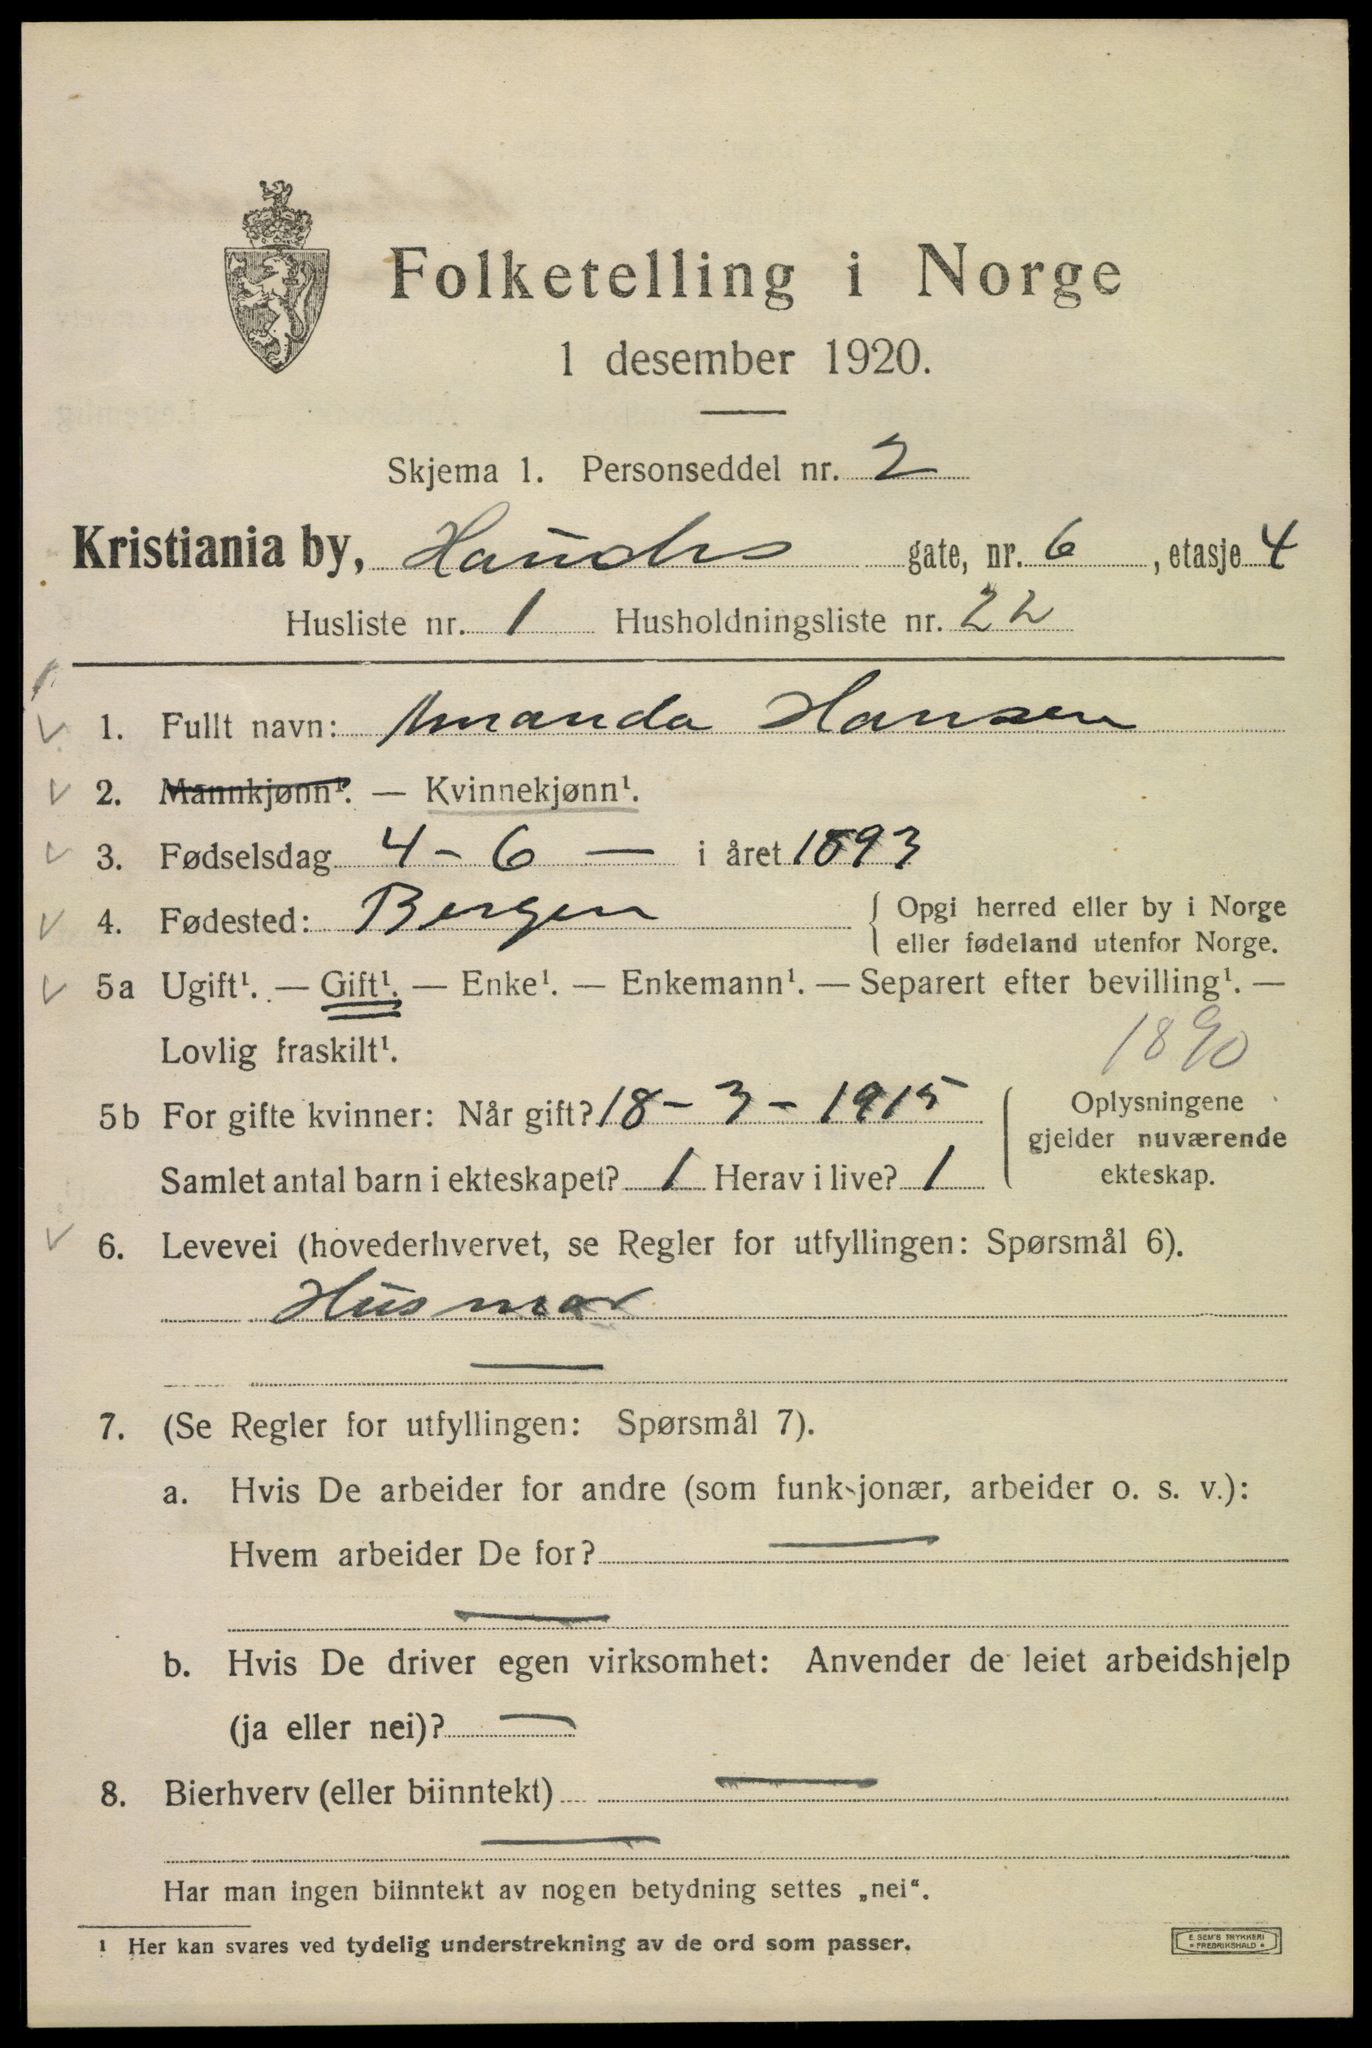 Folketelling i Norge
1 desember 1920.
Skjema 1. Personseddel nr. 2
Kristiania by, Hauchs gate, nr. 6, etasje 4
Husliste nr. 1 Husholdningsliste nr. 22
1. Fullt navn: Amanda Hansen
2. Mannkjønn¹. — Kvinnekjønn¹.
3. Fødselsdag 4 - 6 — i året 1893
4. Fødested: Bergen { Opgi herred eller by i Norge
eller fødeland utenfor Norge.
5a Ugift¹. — Gift¹. — Enke¹. — Enkemann¹. — Separert efter bevilling¹. —
Lovlig fraskilt¹. 1890
5b For gifte kvinner: Når gift? 18 - 3 - 1915
Samlet antal barn i ekteskapet? 1 Herav i live? 1
Oplysningene
gjelder nuværende
ekteskap.
6. Levevei (hovederhvervet, se Regler for utfyllingen: Spørsmål 6).
Husmor
7. (Se Regler for utfyllingen: Spørsmål 7).
a. Hvis De arbeider for andre (som funksjonær, arbeider o. s. v.):
Hvem arbeider De for? —
—
b. Hvis De driver egen virksomhet: Anvender de leiet arbeidshjelp
(ja eller nei)? —
8. Bierhverv (eller biinntekt) —
—
Har man ingen biinntekt av nogen betydning settes „nei“.
¹ Her kan svares ved tydelig understrekning av de ord som passer.
E. SEM'S TRYKKERI
* FREDRIKSHALD *